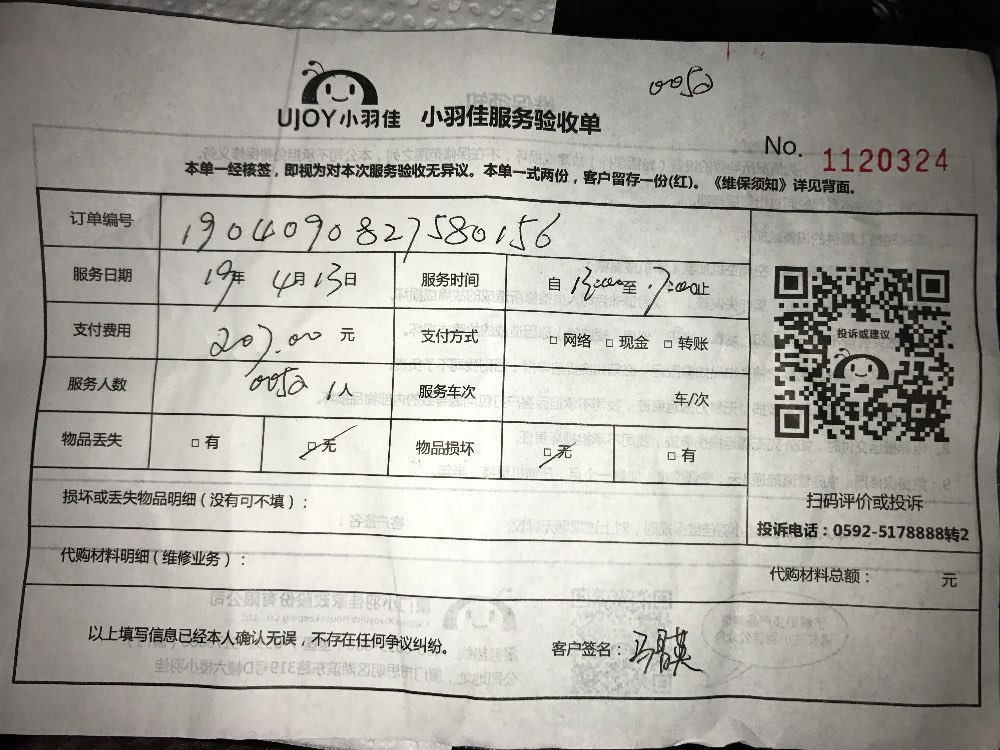 0052
UJOY小羽佳 小羽佳服务验收单
No. 1120324
本单一经核签，即视为对本次服务验收无异议。本单一式两份，客户留存一份(红)。《维保须知》详见背面。
订单编号 190409082758 0156
服务日期 19年 4月13日 服务时间 自 13:00至 17:00止
支付费用 207.00 元 支付方式 □ 网络 □ 现金 □ 转账
服务人数 0052 1人 服务车次 车/次
物品丢失 □ 有 □ 无 物品损坏 □ 无 □ 有
投诉或建议
扫码评价或投诉
投诉电话：0592-5178888转2
损坏或丢失物品明细（没有可不填）：
代购材料明细（维修业务）：
代购材料总额： 元
以上填写信息已经本人确认无误，不存在任何争议纠纷。
客户签名：